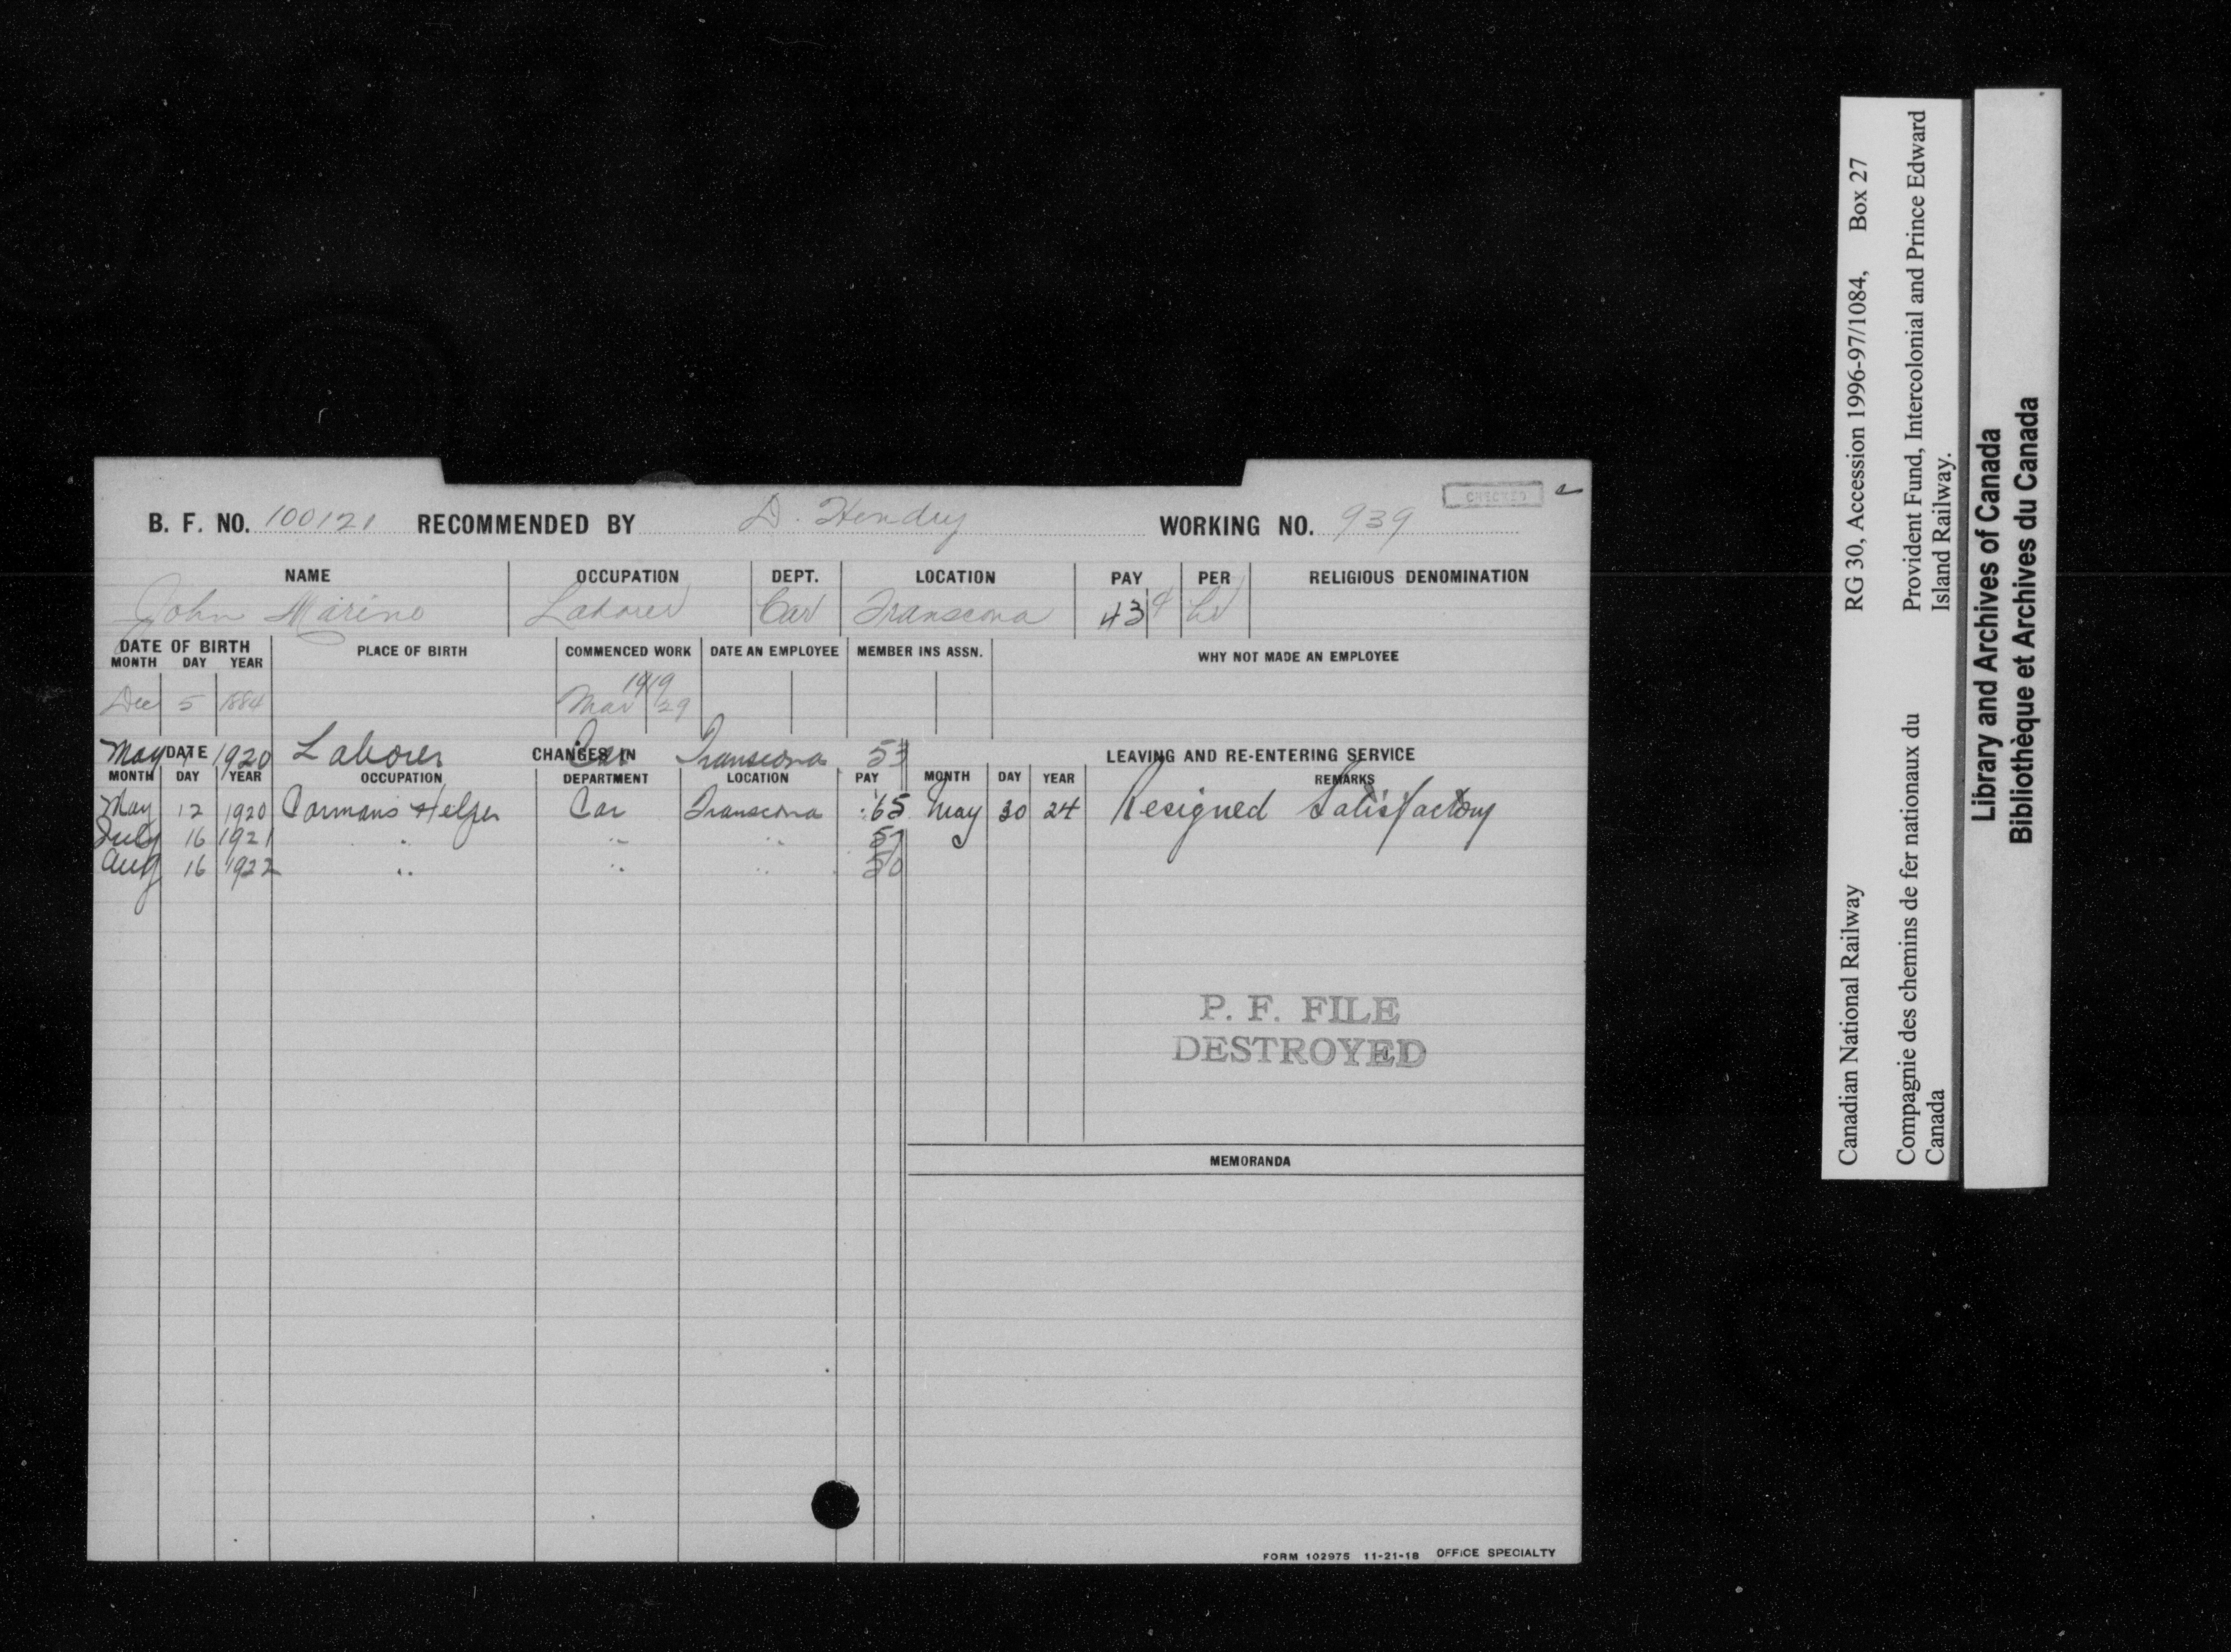 CHECKED
B. F. NO. 100121 RECOMMENDED BY D. Hendry WORKING NO. 939
NAME OCCUPATION DEPT. LOCATION PAY PER RELIGIOUS DENOMINATION
John Marino Laborer Car Transcona 43 ¢ hr
DATE OF BIRTH PLACE OF BIRTH COMMENCED WORK DATE AN EMPLOYEE MEMBER INS ASSN. WHY NOT MADE AN EMPLOYEE
MONTH DAY YEAR
1919
Dec 5 1884 Mar 29
May 1 1920 Laborer Car Transcona 53
DATE CHANGES IN LEAVING AND RE-ENTERING SERVICE
MONTH DAY YEAR OCCUPATION DEPARTMENT LOCATION PAY MONTH DAY YEAR REMARKS
May 12 1920 Carmans Helper Car Transcona .65 May 30 24 Resigned Satisfactory
July 16 1921 " " " 57
Aug 16 1922 " " " 50
P. F. FILE
DESTROYED
MEMORANDA
FORM 102975 11-21-18 OFFICE SPECIALTY
Canadian National Railway RG 30, Accession 1996-97/1084, Box 27
Compagnie des chemins de fer nationaux du Provident Fund, Intercolonial and Prince Edward
Canada Island Railway.
Library and Archives of Canada
Bibliothèque et Archives du Canada